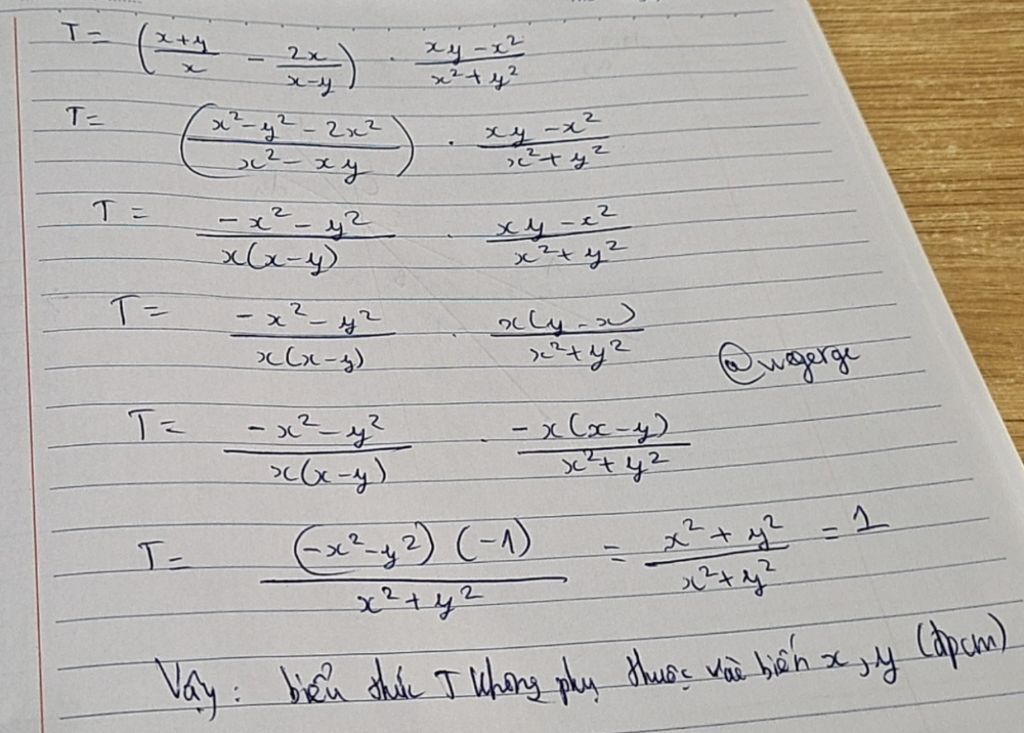 T = (x+y/x - 2x/x-y) . xy-x²/x²+y²
T = (x²-y²-2x²/x²-xy) . xy-x²/x²+y²
T = -x²-y²/x(x-y) . xy-x²/x²+y²
T = -x²-y²/x(x-y) . x(y-x)/x²+y²
@wogergc
T = -x²-y²/x(x-y) . -x(x-y)/x²+y²
T = (-x²-y²)(-1)/x²+y² = x²+y²/x²+y² = 1
Vậy: biểu thức T không phụ thuộc vào biến x, y (đpcm)